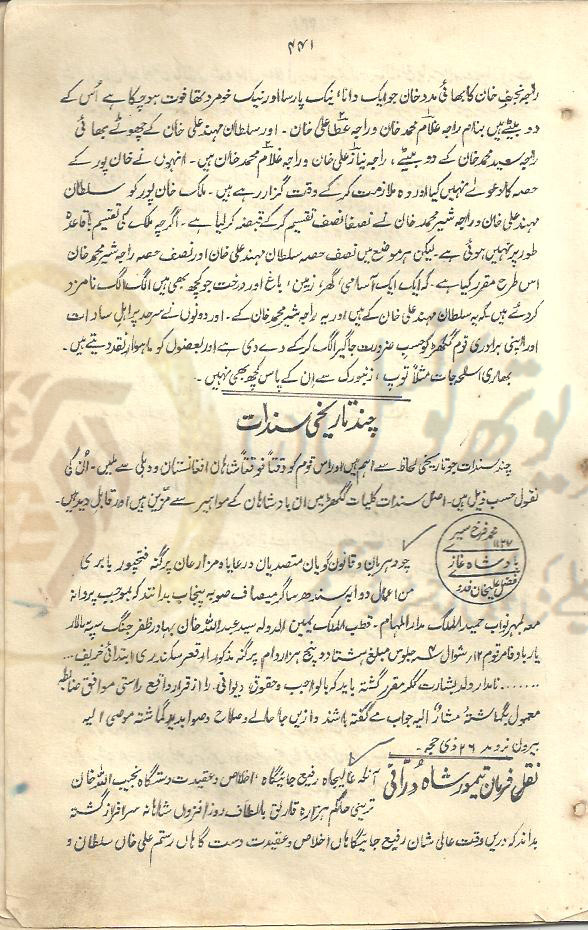 ۴۴۱
راجہ نجیف خان کا بھائی مدد خان جو ایک دانا، نیک پارسا اور نیک خو مرد تھا فوت ہو چکا ہے اُس کے
دو بیٹے ہیں بنام راجہ غلام محمد خان و راجہ عطا علی خان ۔ اور سلطان مہند علی خان کے چھوٹے بھائی
راجہ سید محمد خان کے دو بیٹے، راجہ نیاز علی خان و راجہ غلام محمد خان ہیں ۔ انہوں نے خان پور کے
حصہ کا دعویٰ نہیں کیا اور وہ ملازمت کر کے وقت گزار رہے ہیں ۔ ملک خان پور کو سلطان
مہند علی خان و راجہ شیر محمد خان نے نصفا نصف تقسیم کر کے قبضہ کر لیا ہے ۔ اگرچہ ملک کی تقسیم باقاعدہ
طور پر نہیں ہوئی ہے ۔ لیکن ہر موضع میں نصف حصہ سلطان مہند علی خان اور نصف حصہ راجہ شیر محمد خان
اس طرح مقرر کیا ہے ۔ کہ ایک ایک آسامی، گھر، زمین، باغ اور درخت جو کچھ بھی ہیں الگ الگ نامزد
کر دئے ہیں کہ یہ سلطان مہند علی خان کے ہیں اور یہ راجہ شیر محمد خان کے ۔ اور دونوں نے سرحد پر اہل سادات
اور اپنی برادری قوم گکھڑ کو حسب ضرورت جاگیر الگ کر کے دے دی ہے اور بعضوں کو ماہوار نقد دیتے ہیں ۔
بھاری اسلحہ جات مثلاً توپ، زنبورک سے ان کے پاس کچھ بھی نہیں ۔
چند تاریخی سندات
چند سندات جو تاریخی لحاظ سے اہم ہیں اور اس قوم کو وقتاً فوقتاً شاہان افغانستان و دہلی سے ملیں ۔ اُن کی
نقول حسب ذیل ہیں ۔ اصل سندات کلیات گکھڑ میں ان بادشاہان کے مواہیر سے مزین ہیں اور قابل دید ہیں ۔
محمد فرخ سیر
۱۱۲۷
بادشاہ غازی
فضل علیخان فدوی
چودھریان و قانون گویان متصدیان و رعایا و مزارعان پرگنہ فتحپور بابری
من اعمال دوابہ سندھ ساگر مضاف صوبہ پنجاب بدانند کہ بموجب پروانہ
معہ مہر نواب حمید الملک مدار المہام ۔ قطب الملک یمین الدولہ سید عبداللہ خان بہادر ظفر جنگ سپہ سالار
یار باوفا مرقوم ۱۲ر شوال ۴ جلوس مبلغ ہشتاد و پنج ہزار دام پرگنہ مذکور از سکندری ابتدائی خریف ...
....... نامدار ولد بشارت گکھر مقرر گشتہ باید کہ بالواجب و حقوق دیوانی را از قرار واقع راستی موافق ضابطہ
معمول بگماشتہ مشارٌ الیہ جواب می گفتہ باشند و ازیں جا عالے و صلاح و صوابدید گماشتہ موصی الیہ
بیرون نروند ۲۶ ذی حجہ ۔
نقل فرمان تیمور شاہ دُرّانی
آنکہ عالیجاہ رفیع جائیگاہ، اخلاص و عقیدت دستگاہ نجیب اللہ خان
ترینی حاکم ہزارہ قارلق بالطاف روز افزوں شاہانہ سرافراز گشتہ
بداند کہ دریں وقت عالی شان رفیع جائیگاہاں اخلاص و عقیدت دست گاہاں رستم علی خاں سلطان و